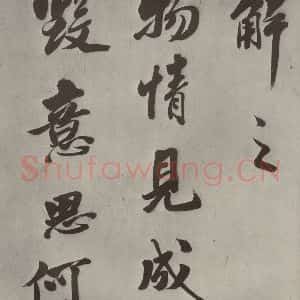 解之
物情見成
毀意思何
Shufawang.CN